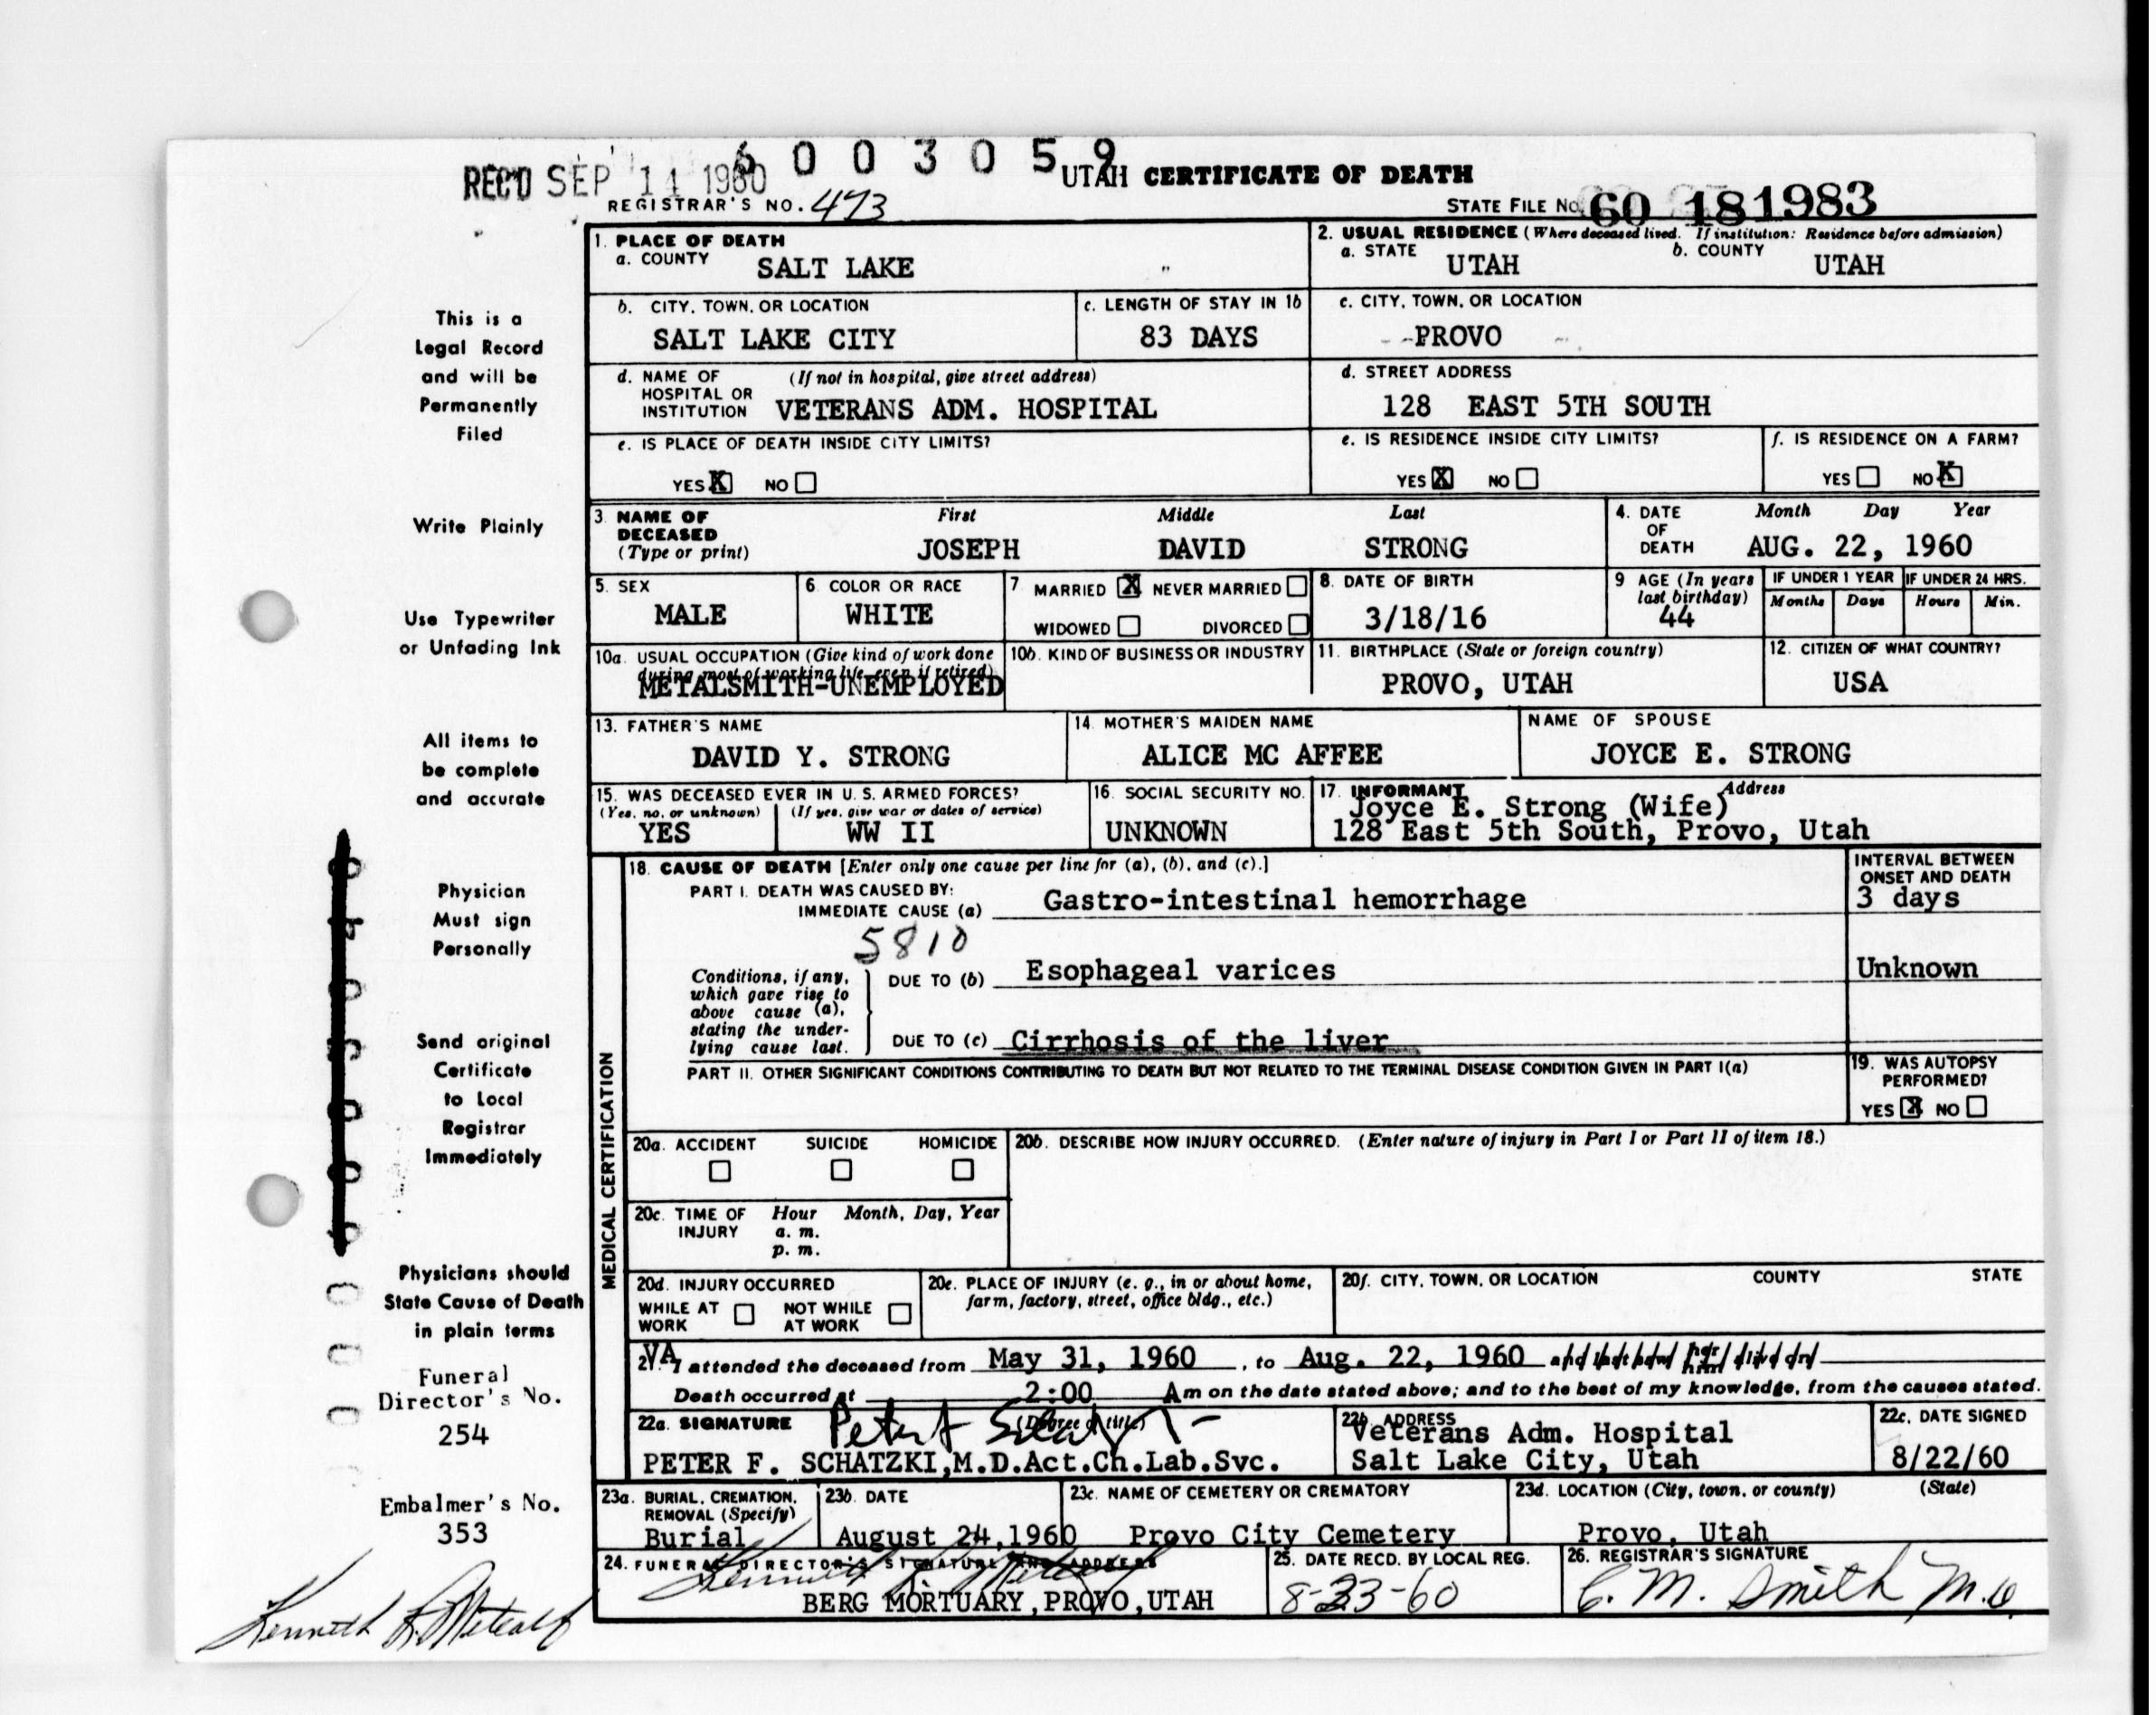 6003059
REC'D SEP 14 1960 UTAH CERTIFICATE OF DEATH
REGISTRAR'S NO. 473 STATE FILE No. 60 181983
1. PLACE OF DEATH
a. COUNTY SALT LAKE
2. USUAL RESIDENCE (Where deceased lived. If institution: Residence before admission)
a. STATE UTAH b. COUNTY UTAH
b. CITY, TOWN, OR LOCATION
SALT LAKE CITY
c. LENGTH OF STAY IN 1b
83 DAYS
c. CITY, TOWN, OR LOCATION
PROVO
d. NAME OF (If not in hospital, give street address)
HOSPITAL OR
INSTITUTION VETERANS ADM. HOSPITAL
d. STREET ADDRESS
128 EAST 5TH SOUTH
e. IS PLACE OF DEATH INSIDE CITY LIMITS?
YES X NO
e. IS RESIDENCE INSIDE CITY LIMITS?
YES X NO
f. IS RESIDENCE ON A FARM?
YES NO X
3. NAME OF First Middle Last
DECEASED
(Type or print) JOSEPH DAVID STRONG
4. DATE Month Day Year
OF
DEATH AUG. 22, 1960
5. SEX
MALE
6. COLOR OR RACE
WHITE
7. MARRIED X NEVER MARRIED
WIDOWED DIVORCED
8. DATE OF BIRTH
3/18/16
9 AGE (In years
last birthday)
44
IF UNDER 1 YEAR
Months Days
IF UNDER 24 HRS.
Hours Min.
10a. USUAL OCCUPATION (Give kind of work done
during most of working life, even if retired)
METALSMITH-UNEMPLOYED
10b. KIND OF BUSINESS OR INDUSTRY
11. BIRTHPLACE (State or foreign country)
PROVO, UTAH
12. CITIZEN OF WHAT COUNTRY?
USA
13. FATHER'S NAME
DAVID Y. STRONG
14. MOTHER'S MAIDEN NAME
ALICE MC AFFEE
NAME OF SPOUSE
JOYCE E. STRONG
15. WAS DECEASED EVER IN U. S. ARMED FORCES?
(Yes, no, or unknown) (If yes, give war or dates of service)
YES WW II
16. SOCIAL SECURITY NO.
UNKNOWN
17. INFORMANT Address
Joyce E. Strong (Wife)
128 East 5th South, Provo, Utah
18. CAUSE OF DEATH [Enter only one cause per line for (a), (b), and (c).]
PART I. DEATH WAS CAUSED BY:
IMMEDIATE CAUSE (a) Gastro-intestinal hemorrhage
INTERVAL BETWEEN
ONSET AND DEATH
3 days
5810
Conditions, if any,
which gave rise to
above cause (a),
stating the under-
lying cause last.
DUE TO (b) Esophageal varices Unknown
DUE TO (c) Cirrhosis of the liver
PART II. OTHER SIGNIFICANT CONDITIONS CONTRIBUTING TO DEATH BUT NOT RELATED TO THE TERMINAL DISEASE CONDITION GIVEN IN PART I(a)
19. WAS AUTOPSY
PERFORMED?
YES X NO
MEDICAL CERTIFICATION
20a. ACCIDENT SUICIDE HOMICIDE
20b. DESCRIBE HOW INJURY OCCURRED. (Enter nature of injury in Part I or Part II of item 18.)
20c. TIME OF Hour Month, Day, Year
INJURY a. m.
p. m.
20d. INJURY OCCURRED
WHILE AT WORK NOT WHILE AT WORK
20e. PLACE OF INJURY (e. g., in or about home,
farm, factory, street, office bldg., etc.)
20f. CITY, TOWN, OR LOCATION COUNTY STATE
21. VA I attended the deceased from May 31, 1960, to Aug. 22, 1960 and last saw her/him alive on
Death occurred at 2:00 Am on the date stated above; and to the best of my knowledge, from the causes stated.
22a. SIGNATURE (Degree or title)
PETER F. SCHATZKI,M.D.Act.Ch.Lab.Svc.
22b. ADDRESS
Veterans Adm. Hospital
Salt Lake City, Utah
22c. DATE SIGNED
8/22/60
23a. BURIAL, CREMATION,
REMOVAL (Specify)
Burial
23b. DATE
August 24,1960
23c. NAME OF CEMETERY OR CREMATORY
Provo City Cemetery
23d. LOCATION (City, town, or county) (State)
Provo, Utah
24. FUNERAL DIRECTOR'S SIGNATURE AND ADDRESS
BERG MORTUARY,PROVO,UTAH
25. DATE RECD. BY LOCAL REG.
8-23-60
26. REGISTRAR'S SIGNATURE
C. M. Smith M.D.
This is a
Legal Record
and will be
Permanently
Filed
Write Plainly
Use Typewriter
or Unfading Ink
All items to
be complete
and accurate
Physician
Must sign
Personally
Send original
Certificate
to Local
Registrar
Immediately
Physicians should
State Cause of Death
in plain terms
Funeral
Director's No.
254
Embalmer's No.
353
Kenneth R. Metcalf